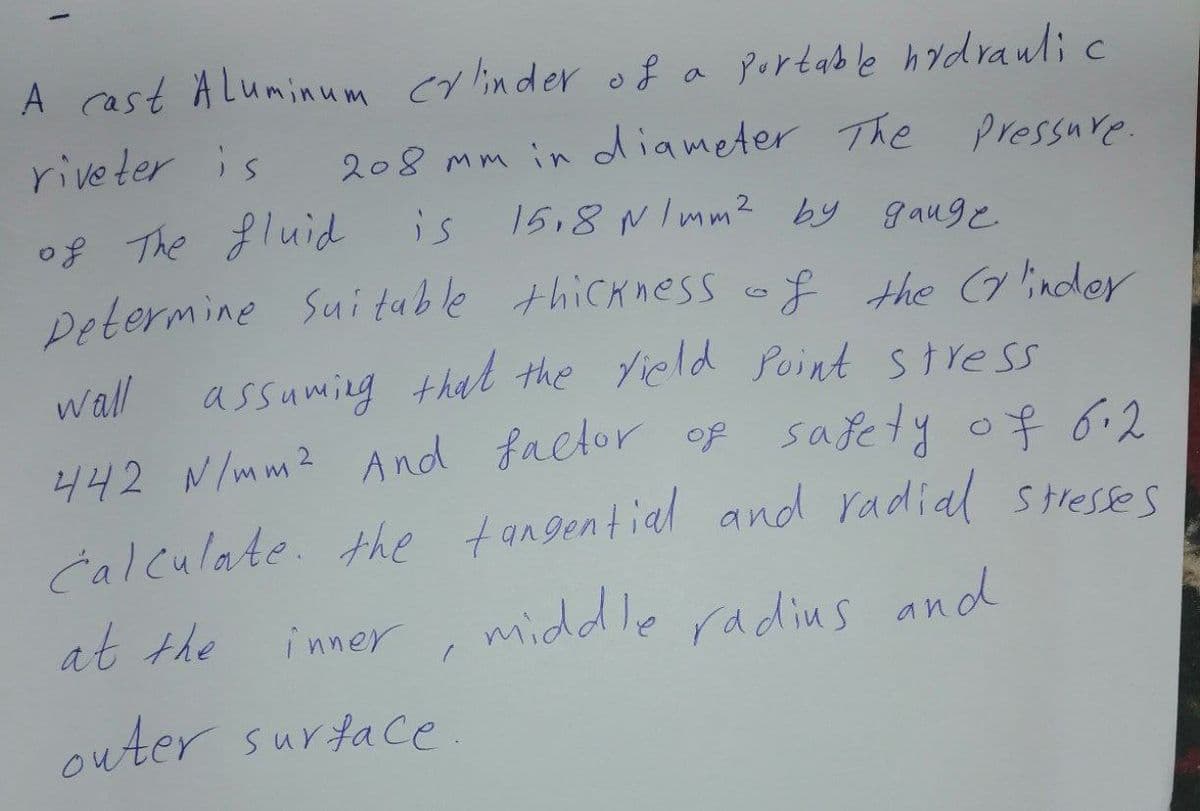 A cast Aluminum cylinder of a Portable hydraulic
riveter is 208 mm in diameter The Pressure.
of The fluid is 15.8 N/mm² by gauge
Determine Suitable thickness of the Cylinder
wall assuming that the yield Point stress
442 N/mm² And factor of safety of 6.2
Calculate. the tangential and radial stresses
at the inner , middle radius and
outer surface.